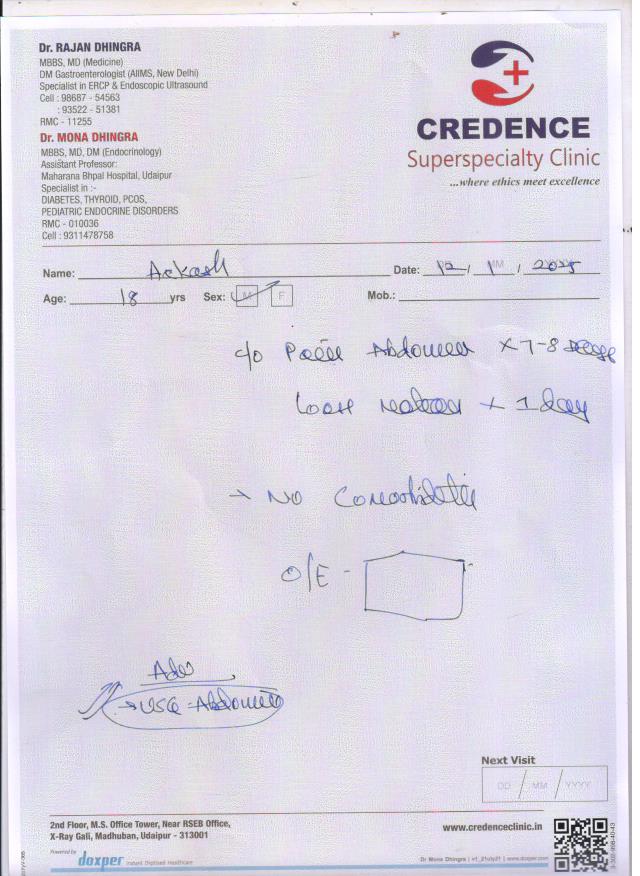 Dr. RAJAN DHINGRA
MBBS, MD (Medicine)
DM Gastroenterologist (AIIMS, New Delhi)
Specialist in ERCP & Endoscopic Ultrasound
Cell : 98687 - 54563
: 93522 - 51381
RMC - 11255
Dr. MONA DHINGRA
MBBS, MD, DM (Endocrinology)
Assistant Professor:
Maharana Bhpal Hospital, Udaipur
Specialist in :-
DIABETES, THYROID, PCOS,
PEDIATRIC ENDOCRINE DISORDERS
RMC - 010036
Cell : 9311478758
CREDENCE
Superspecialty Clinic
...where ethics meet excellence
Name: Date: / 1 / 2025
Age: 18 yrs Sex: M F Mob.:
c/o Pain Abdomen × 7-8 days
Loose motion + 1 day
→ No Comorbidities
O/E -
Adv
→ USG - Abdomen
Next Visit
DD / MM / YYYY
2nd Floor, M.S. Office Tower, Near RSEB Office,
X-Ray Gali, Madhuban, Udaipur - 313001
www.credenceclinic.in
Powered by
doxper Instant Digitised Healthcare
Dr Mona Dhingra | v1_21july21 | www.doxper.com